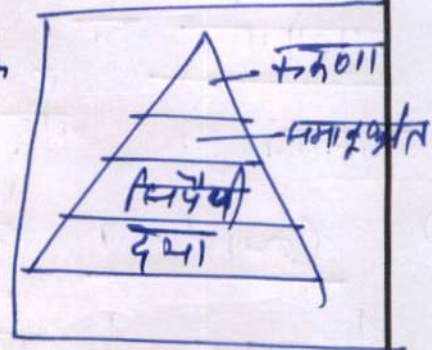 करुणा
समानुभूति
सिंपैथी
दया